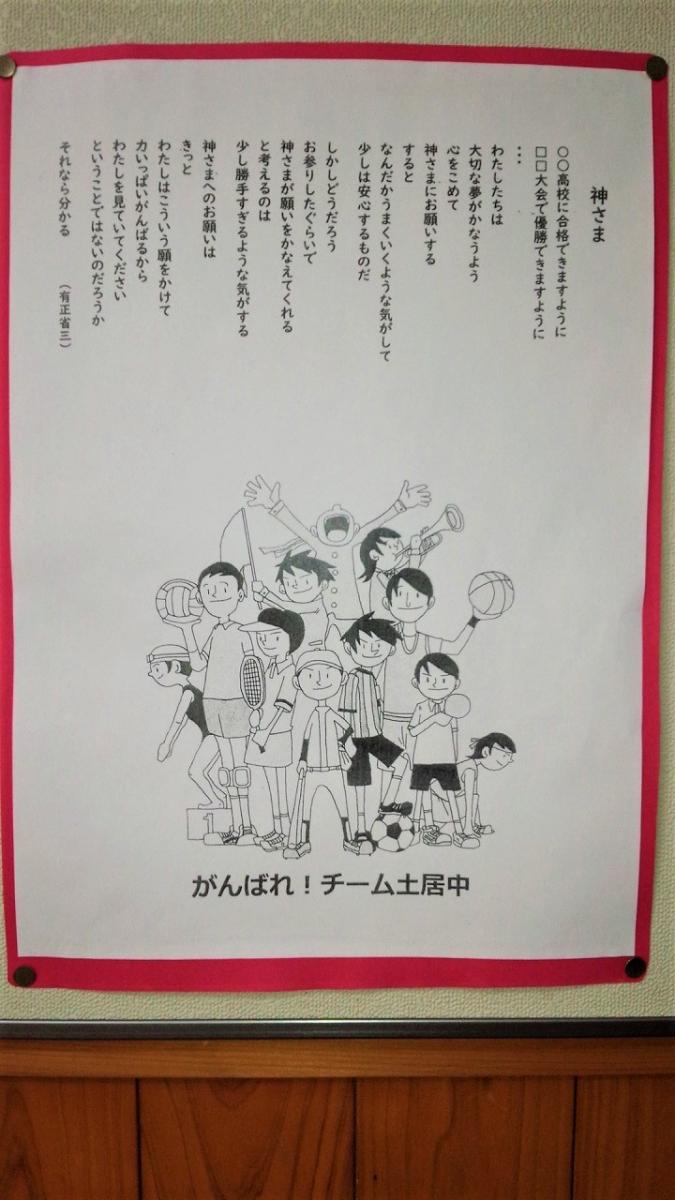 神さま
○○高校に合格できますように
□□大会で優勝できますように
・・・
わたしたちは
大切な夢がかなうよう
心をこめて
神さまにお願いする
すると
なんだかうまくいくような気がして
少しは安心するものだ
しかしどうだろう
お参りしたぐらいで
神さまが願いをかなえてくれる
と考えるのは
少し勝手すぎるような気がする
神さまへのお願いは
きっと
わたしはこういう願をかけて
力いっぱいがんばるから
わたしを見ていてください
ということではないのだろうか
それなら分かる
（有正省三）
1
がんばれ！チーム土居中